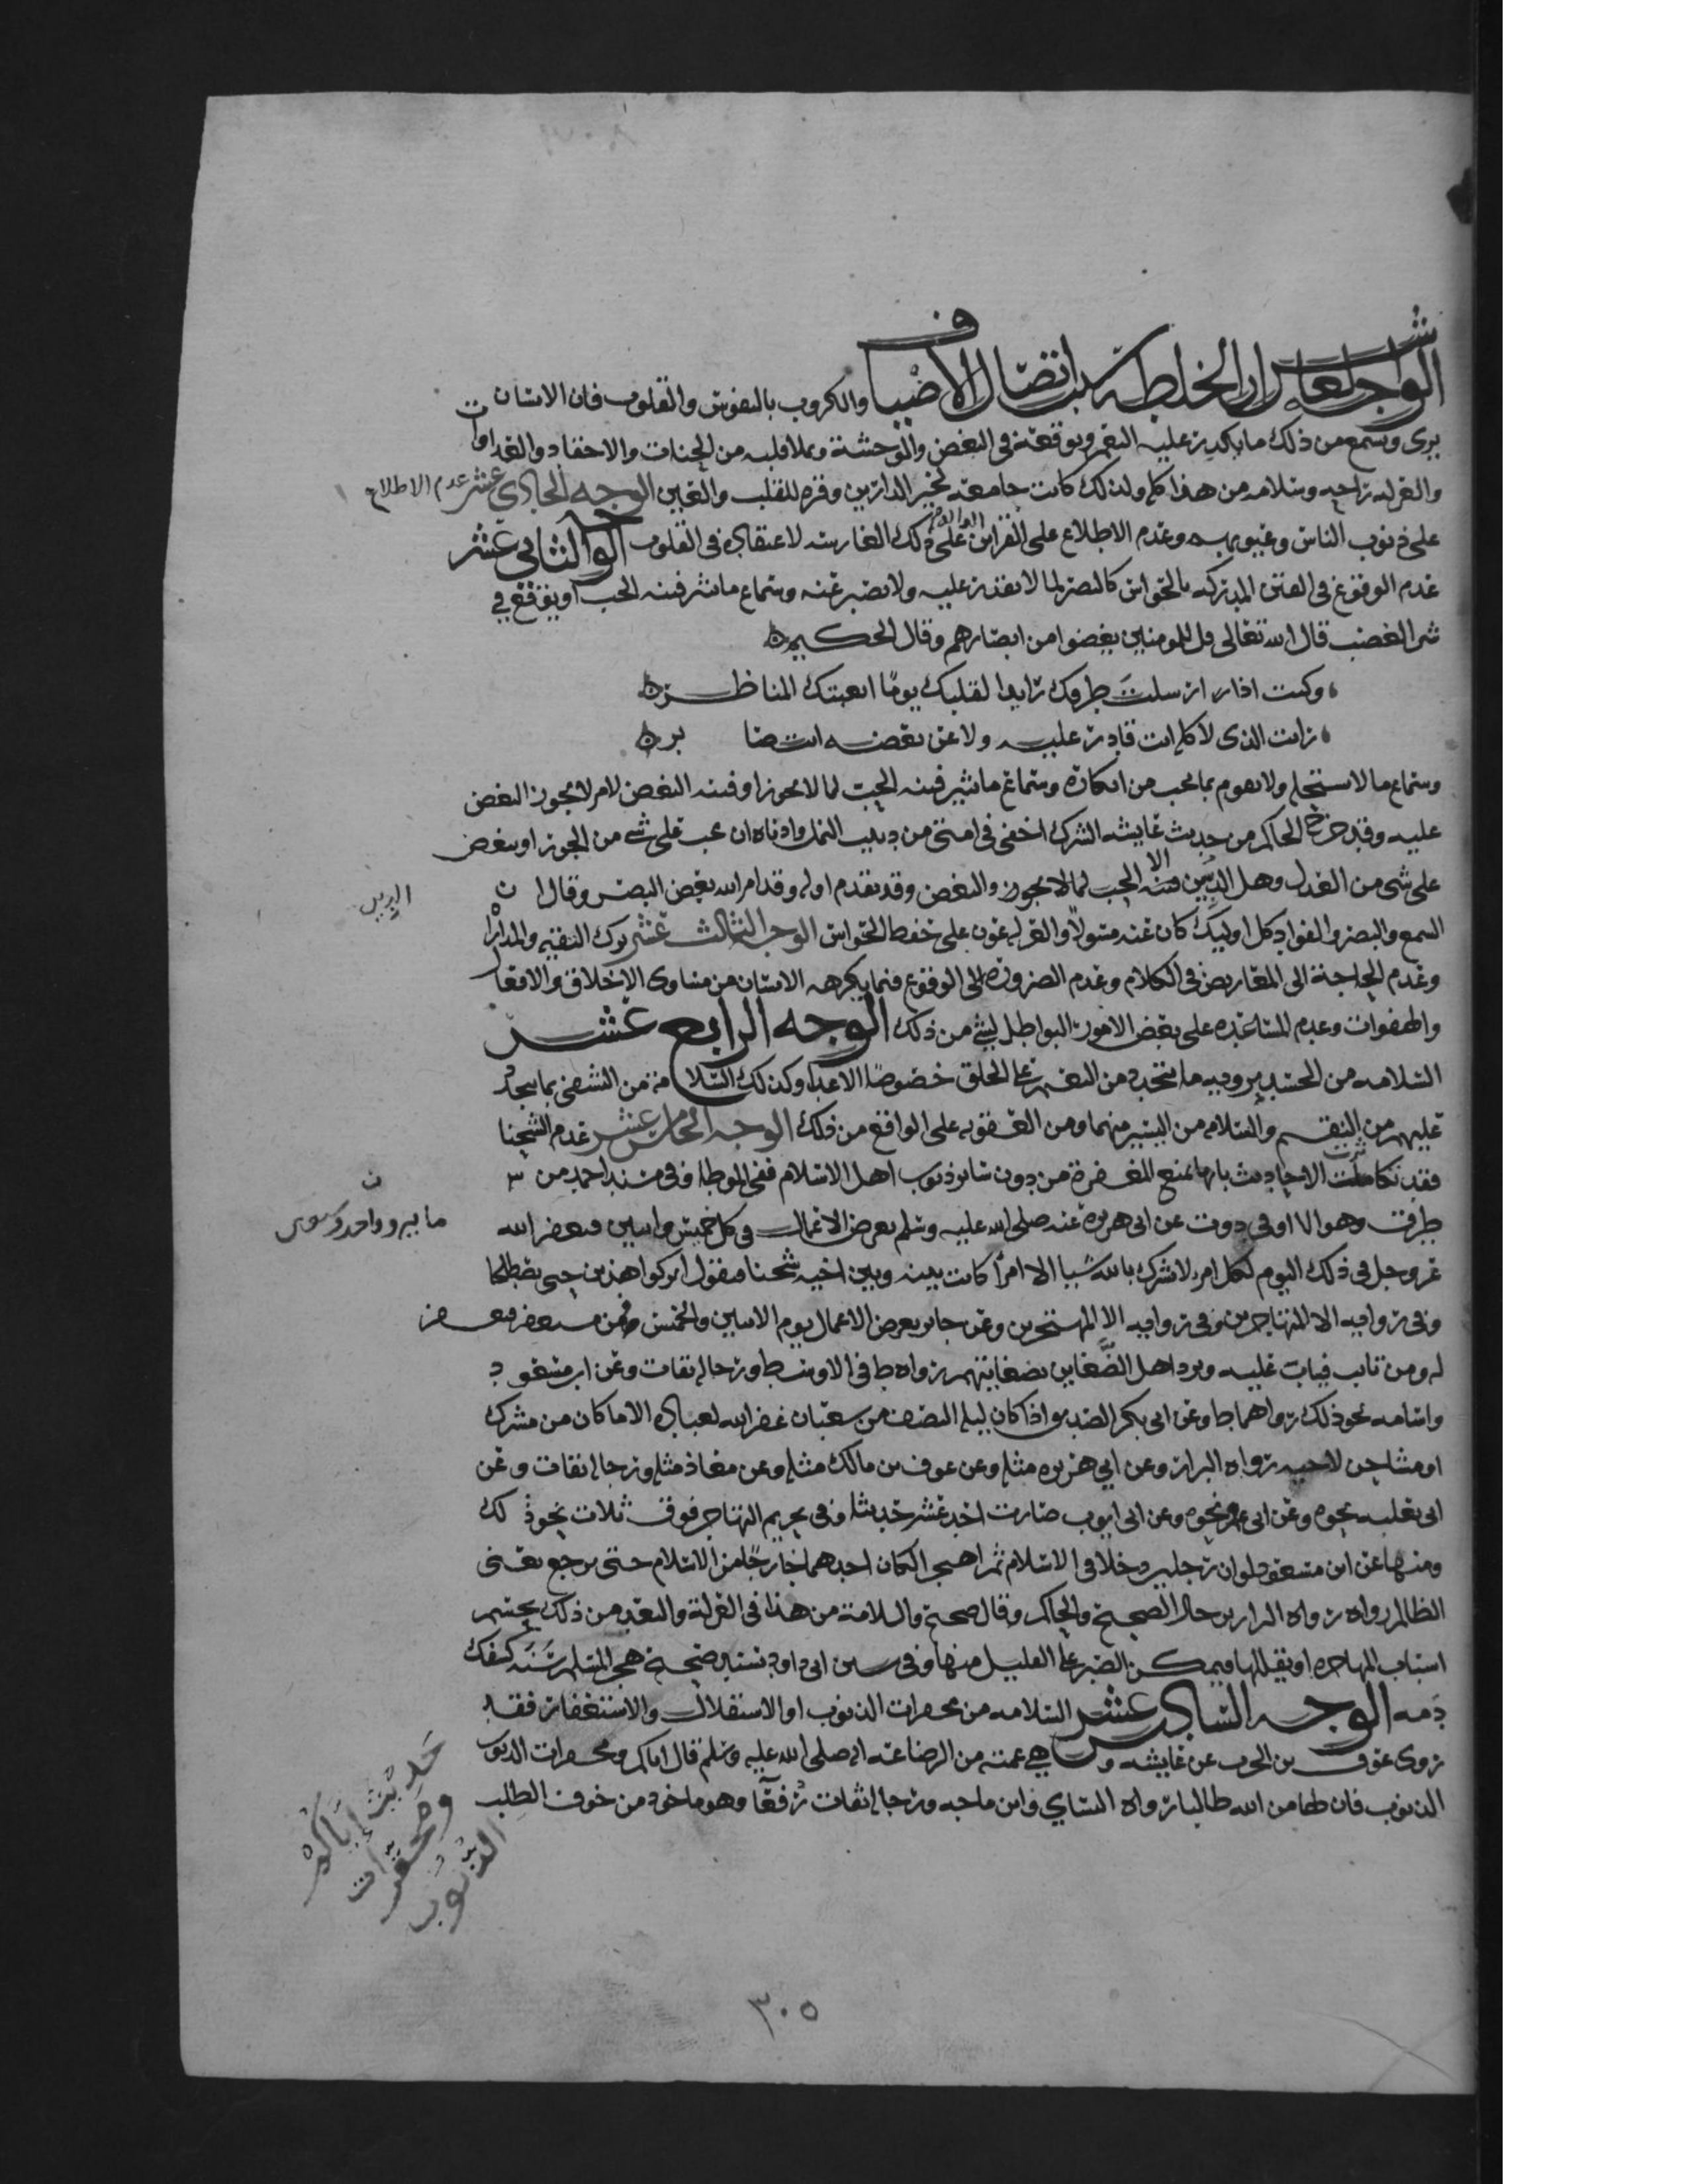 الوجه العاشر ان الخلطة سبب اتصال الاضياف والكروب بالنفوس والقلوب فان الانسان
يرى ويسمع من ذلك ما يكدر عليه العمر ويوقعه في البغض والوحشة ويملا قلبه من الحنات والاحقاد والعداوات
والعزله راحه وسلامه من هذا كله ولذلك كانت جامعه لخير الدارين وقره للقلب والعين الوجه الحادي عشر عدم الاطلاع
على ذنوب الناس وعيوبهم وعدم الاطلاع على القراين الداله على ذلك الغارسه لاعتقاده في القلوب الوجه الثاني عشر
عدم الوقوع في الفتن المدركه بالحواس كالبصر لما لا يقدر عليه ولا يصبر عنه وسماع ما يثير فتنه الحب او يوقع في
شر الغضب قال الله تعالى قل للمومنين يغضوا من ابصارهم وقال الحكيم
وكنت اذا ارسلت طرفك رايدا لقلبك يوما اتعبتك المناظر
رايت الذي لا كله انت قادر عليه ولا عن بعضه انت صابر
وسماع ما لا يستحله ولا يقوم بما يجب من انكاره وسماع ما يثير فتنه الحب لما لا يجوز او فتنه البغض لامر لا يجوز البغض
عليه وقد خرج الحاكم من حديث عايشه الشرك اخفى في امتي من دبيب النمل وادناه ان يحب على شي من الجور او يبغض
على شي من العدل وهل الدين الا الحب والبغض وقد تقدم اوله وقد امر الله بغض البصر وقال ان
الدين
السمع والبصر والفواد كل اوليك كان عنه مسولا والعزله عون على حفظ الحواس الوجه الثالث عشر ترك التقيه والمداراه
وعدم الحاجة الى المعاريض في الكلام وعدم الضروره الى الوقوع فيما يكرهه الانسان من مساوى الاخلاق والافعال
والهفوات وعدم المساعده على بعض الامور البواطل لشي من ذلك الوجه الرابع عشر
السلامه من الحسد برويه ما يتجدد من النعم على الخلق خصوصا الاعدا وكذلك السلامة من التشفي بما يتجدد
عليهم من النقم والسلامه من اليسير منهما ومن العقوبه على الواقع من ذلك الوجه الخامس عشر عدم الشحنا
فقد تكاثرت الاحاديث بانها تمنع المغفرة من دون ساير ذنوب اهل الاسلام ففي الموطا وفي مسند احمد من
طرق عن ابي هريره عنه صلى الله عليه وسلم تعرض الاعمال في كل خميس واثنين فيغفر الله
عز وجل في ذلك اليوم لكل امرء لا يشرك بالله شيا الا امرأ كانت بينه وبين اخيه شحنا فيقول اتركوا هذين حتى يصطلحا
وفي روايه الا المتهاجرين وفي روايه الا المهتجرين وعن جابر تعرض الاعمال يوم الاثنين والخميس فمن مستغفر فيغفر
له ومن تايب فيتاب عليه ويرد اهل الضغاين بضغاينهم رواه ط في الاوسط ورجاله ثقات وعن ابن مسعود
واسامه نحو ذلك رواهما ط وعن ابي بكر الصديق اذا كان ليله النصف من شعبان غفر الله لعباده الا ما كان من مشرك
او مشاحن لاخيه رواه البزار وعن ابي هريره مثله وعن عوف بن مالك مثله وعن معاذ مثله ورجاله ثقات وعن
ابي ثعلبه نحوه وعن نحوه وعن ابي ايوب صارت احد عشر حديثا وفي تحريم التهاجر فوق ثلاث نحو ذلك
ومنها عن ابن مسعود لو ان رجلين دخلا في الاسلام ثم اهتجرا لكان احدهما خارجا من الاسلام حتى يرجع يعنى
الظالم رواه البزار برجال الصحيح والحاكم وقال صحيح والسلامة من هذا في العزلة والبعد من ذلك بحسم
اسباب المهاجره او تقليلها فيمكن الصبر على القليل منها وفي سنن ابي داود بسند صحيح هجر المسلم سنه كسفك
دمه الوجه السادس عشر السلامه من محقرات الذنوب او الاستقلال والاستغفار فقد
روى عوف بن الحرث عن عايشه وهي عمته من الرضاعة انه صلى الله عليه وسلم قال اياكم ومحقرات الذنوب
الذنوب فان لها من الله طالبا رواه النساي وابن ماجه ورجاله ثقات رفعا وهو ماخوذ من خوف الطلب
حديث إياكم
ومحقرات
الذنوب
٣٠٥